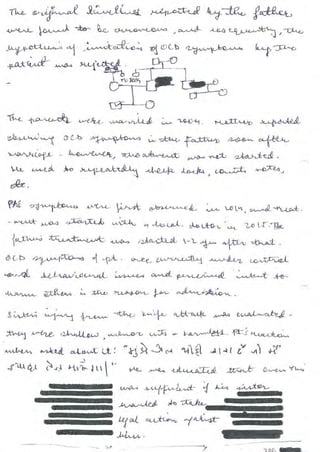 The original timelines reported by the father
were found to be erroneous, and consequently, the
hypothesis of imitation of OCD symptoms by the
patient was rejected.
The parents were married in 2004. Mother reported
observing OCD symptoms in the father soon after
marriage. However, treatment was not started.
He used to repeatedly check locks, count notes,
etc.
Pt's symptoms were first observed in 2014, and treat-
ment was started with a local doctor in 2015. The
father's treatment was started 1-2 yrs after that.
OCD symptoms of pt. are currently under control
and behavioural issues and perceived intent to
harm others is the reason for admission.
Sister's injury from the knife attack was evaluated.
They were shallow, minor cuts - harmless. Pt's reaction
when asked about it:
He was educated that even this
was sufficient if his sister
wanted to take
legal action against
him.